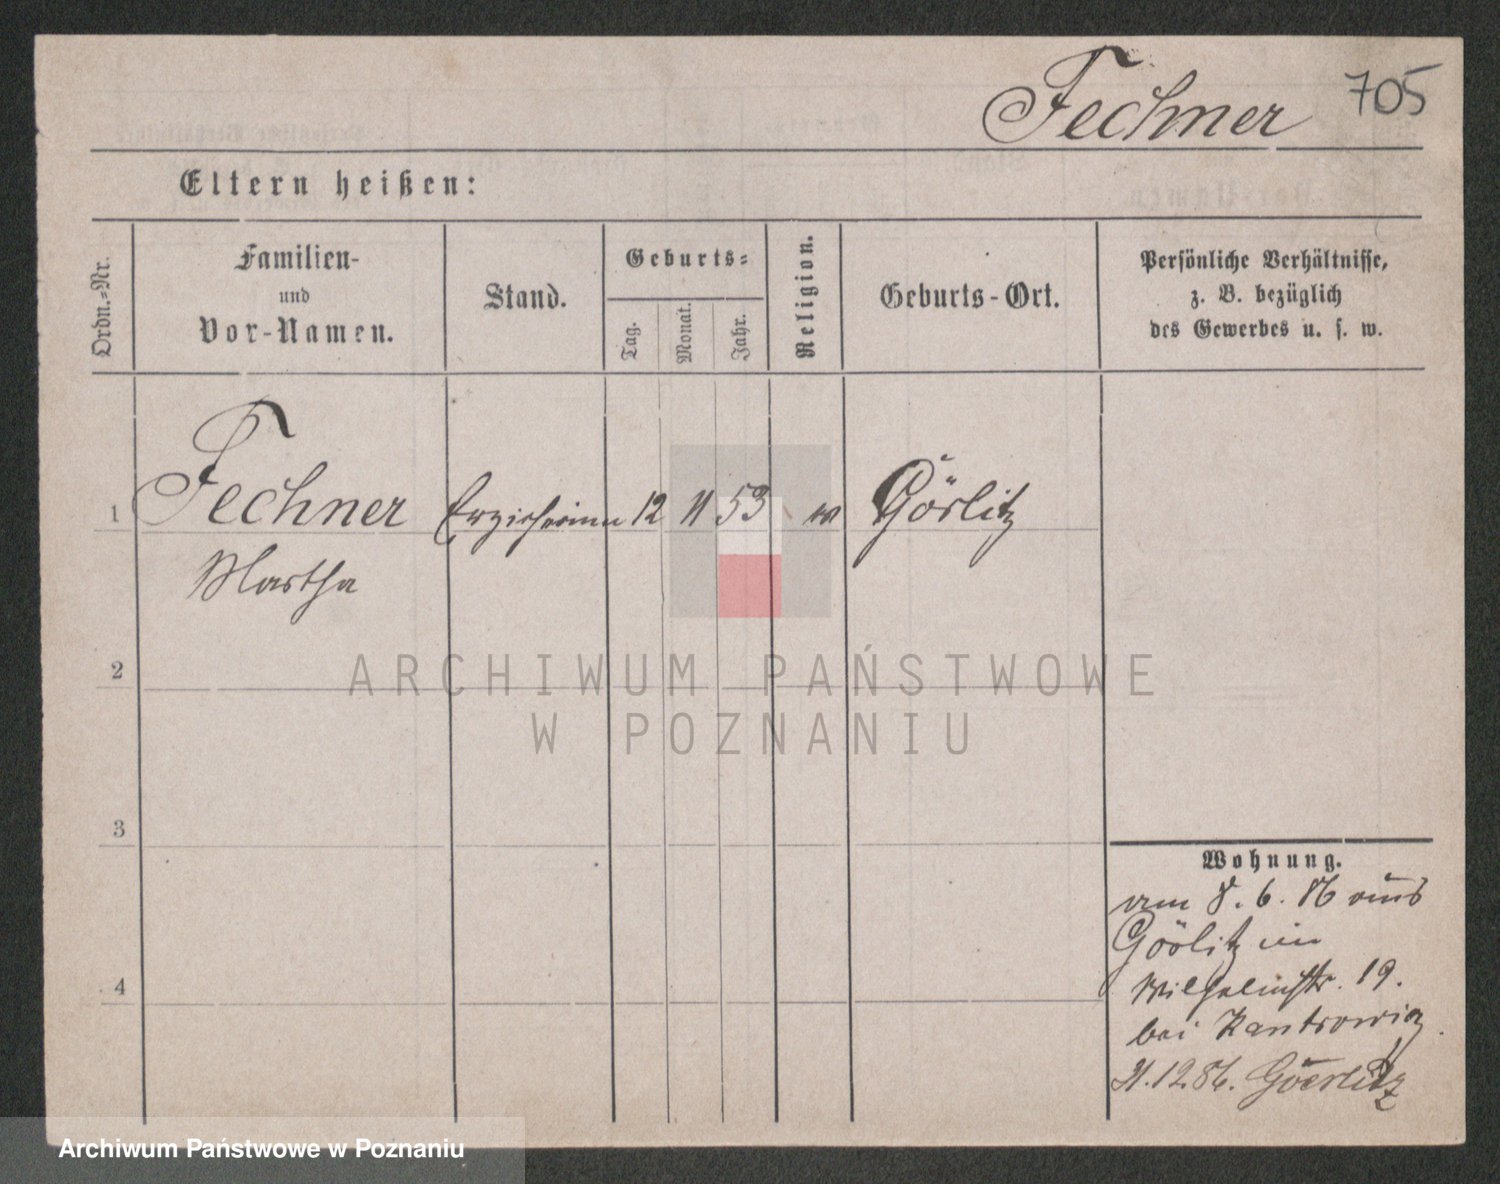 Fechner 705
Eltern heißen:
Ordn.-Nr.
Familien-
und
Vor-Namen.
Stand.
Geburts-
Tag.
Monat.
Jahr.
Religion.
Geburts-Ort.
Persönliche Verhältnisse,
z. B. bezüglich
des Gewerbes u. s. w.
1 Fechner Erzieherinn 12 11 53 Görlitz
Martha
2
ARCHIWUM PAŃSTWOWE
W POZNANIU
3
4
Wohnung.
am 8. 6. 86 aus
Görlitz in
Wilhelmstr. 19.
bei Kantrowicz
12.86. Goerlitz
Archiwum Państwowe w Poznaniu